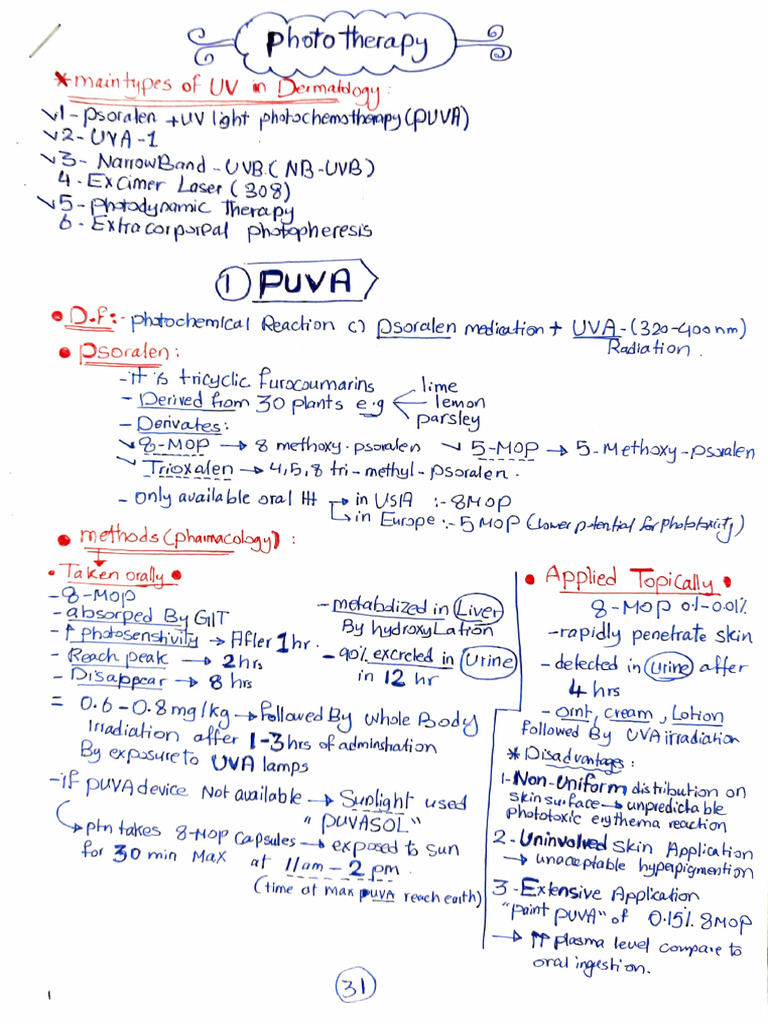 Phototherapy
* main types of UV in Dermatology:
✓1- Psoralen + UV light photochemotherapy (PUVA)
✓2- UVA-1
✓3- NarrowBand - UVB (NB-UVB)
4- Excimer Laser (308)
✓5- Photodynamic Therapy
6- Extracorporeal photopheresis
① PUVA
• D.f:- photochemical Reaction c) psoralen medication + UVA-(320-400nm)
Radiation.
• Psoralen:
- it is tricyclic furocoumarins
- Derived from 30 plants e.g lime
lemon
parsley
- Derivates:
✓ 8-MOP → 8 methoxy-psoralen ✓ 5-MOP → 5-Methoxy-psoralen
✓ Trioxalen → 4,5,8 tri-methyl-psoralen.
- only available oral ttt → in USA :- 8MOP
→ in Europe :- 5MOP (lower potential for phototoxicity)
• methods (pharmacology) :
• Taken orally •
- 8-MOP
- absorped By GIT
- ↑ photosenstivity → After 1 hr.
- Reach peak → 2 hrs
- Disappear → 8 hrs
- metabolized in Liver
By hydroxyLation
- 90% excreted in Urine
in 12 hr
= 0.6 - 0.8 mg/kg → followed By whole Body
irradiation after 1-3 hrs of adminstration
By exposure to UVA lamps
- if PUVA device Not available → Sunlight used
"PUVASOL"
→ ptn takes 8-MOP capsules → exposed to sun
for 30 min Max at 11am - 2pm.
(time of max PUVA reach earth)
• Applied Topically •
8-MOP 0.1-0.01%
- rapidly penetrate skin
- detected in Urine after
4 hrs
- oint, cream, Lotion
followed By UVA irradiation
* Disadvantages:
1- Non-Uniform distribution on
skin surface → unpredictable
phototoxic erythema reaction
2- Uninvolved Skin Application
→ unacceptable hyperpigmention
3- Extensive Application
"paint PUVA" of 0.15% 8MOP
→ ↑↑ plasma level compare to
oral ingestion.
31